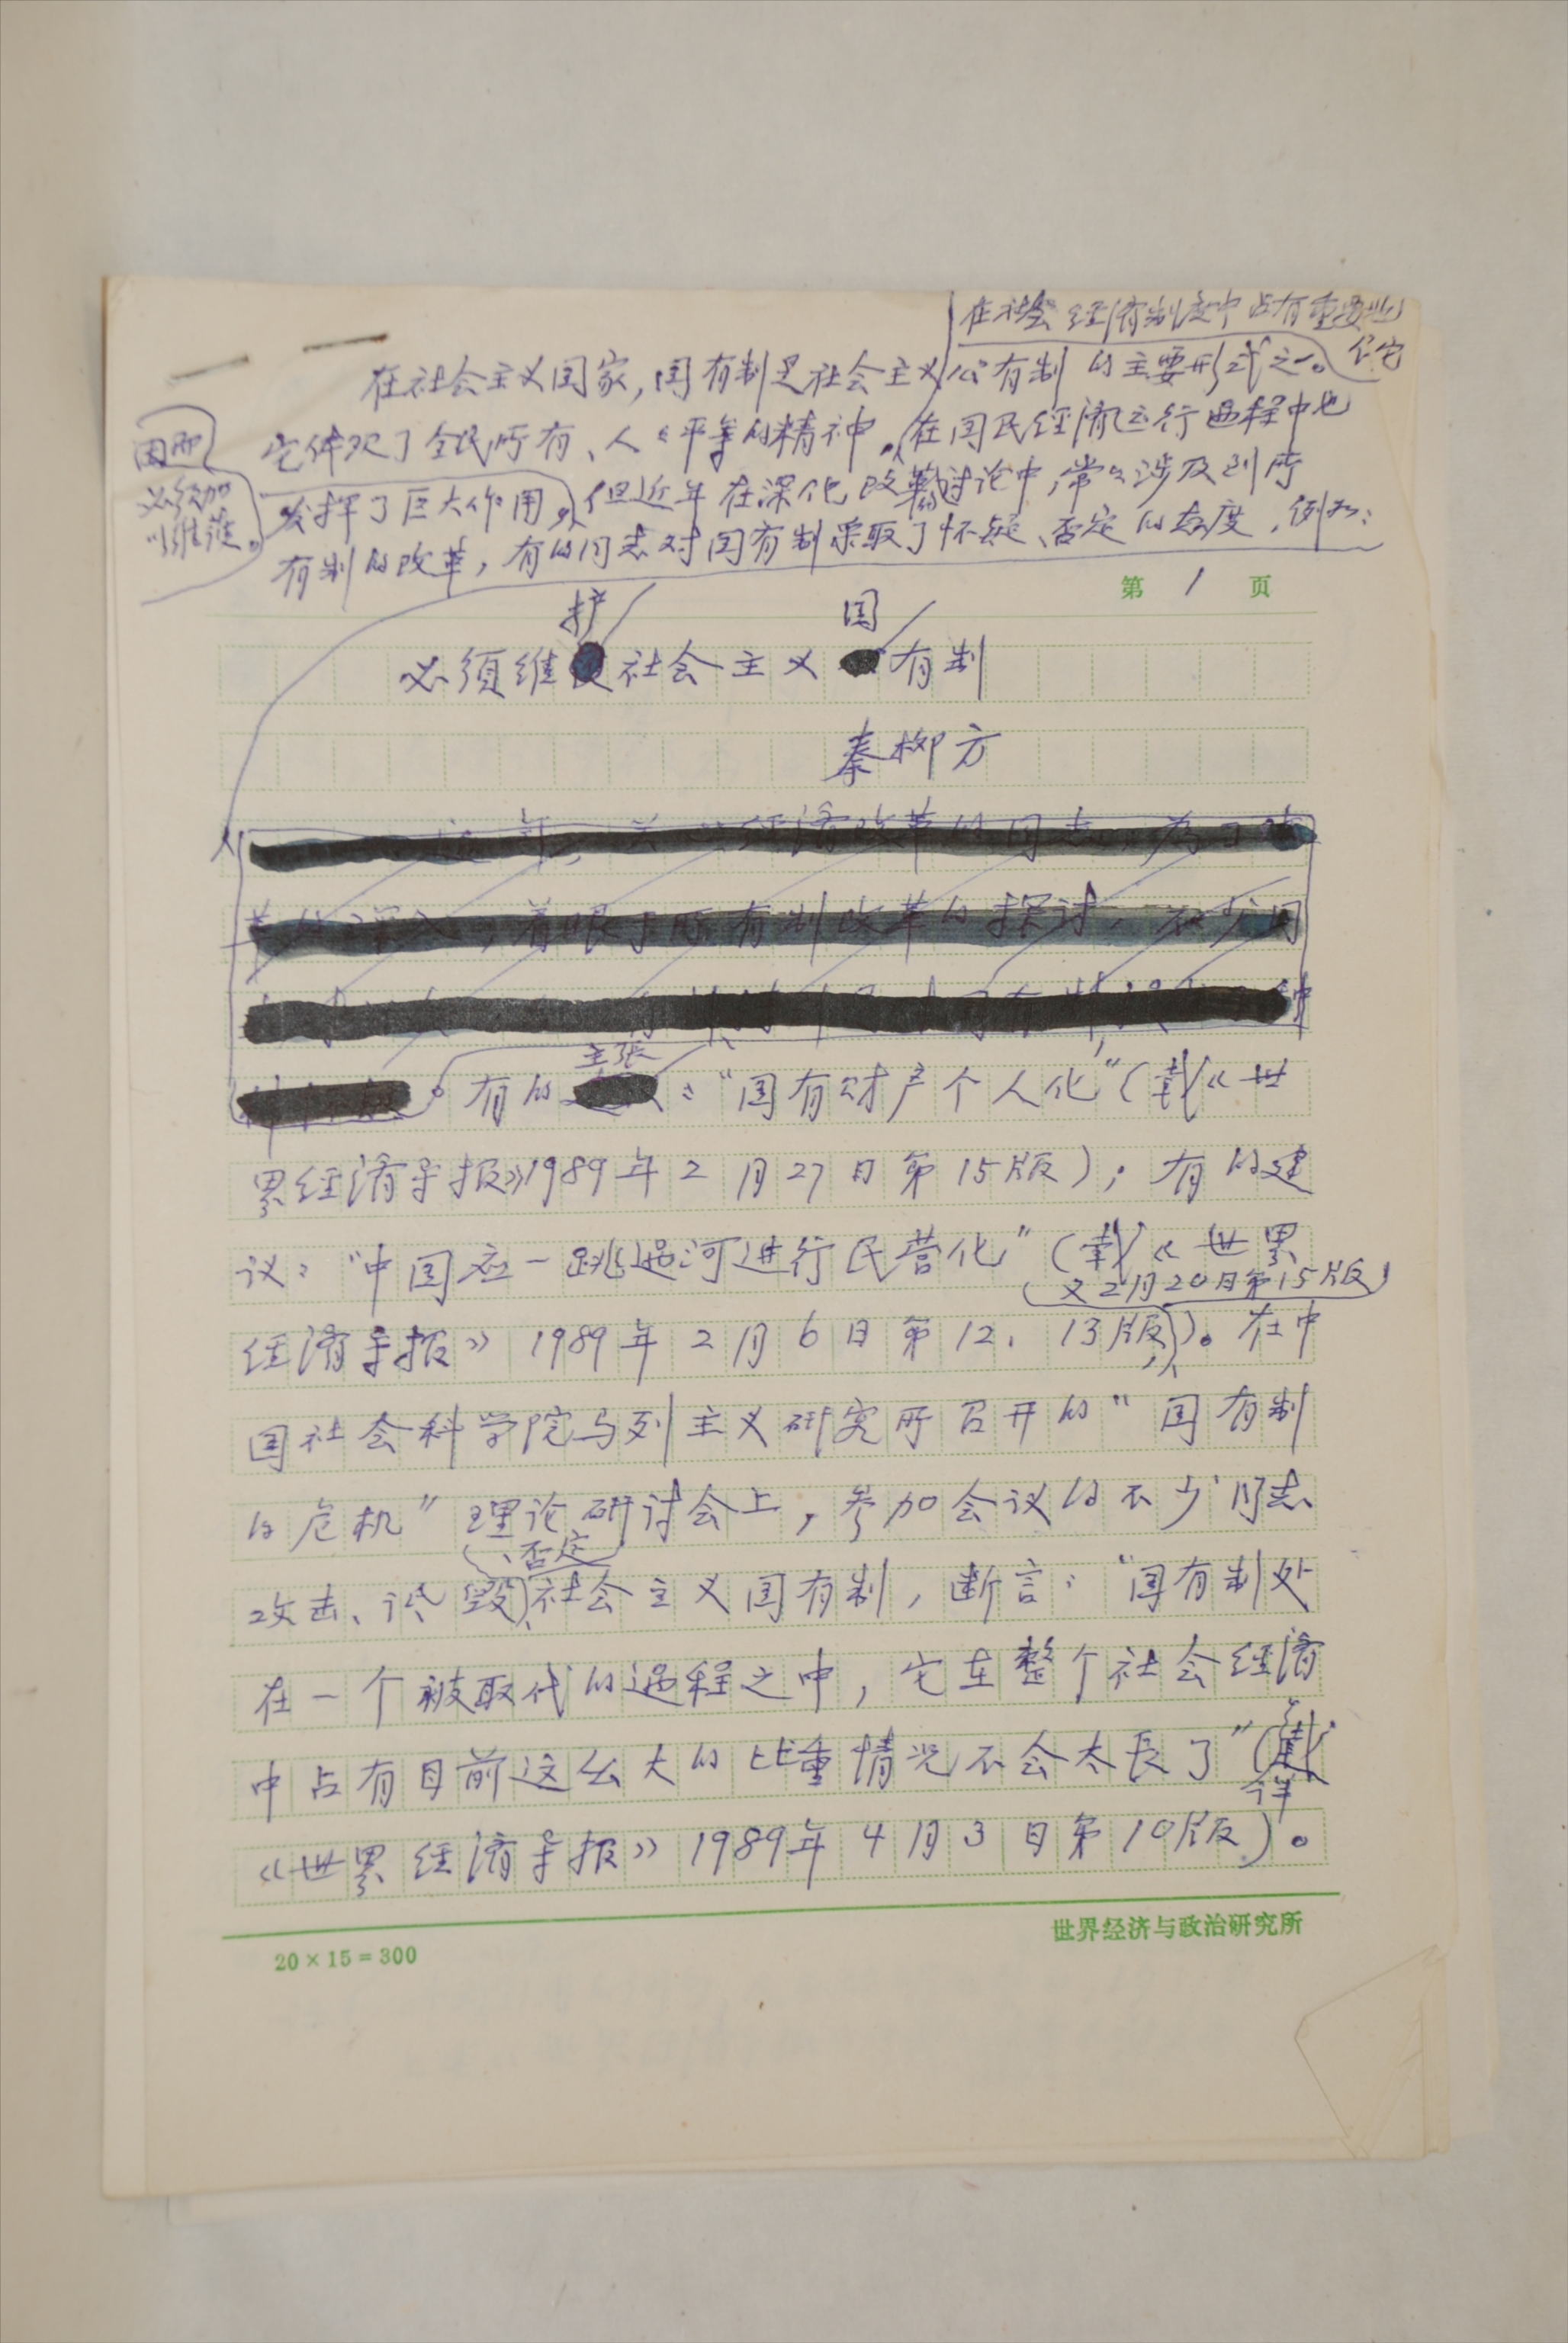 在社会经济制度中占有重要地
位它
在社会主义国家,国有制是社会主义公有制的主要形式之一。
它体现了全民所有、人〻平等的精神。在国民经济运行过程中也
因而
必须加
以维护。
发挥了巨大作用。但近年在深化改革讨论中,常〻涉及到所
有制的改革,有的同志对国有制采取了怀疑、否定的态度,例如:
第 1 页
护 国
必须维社会主义有制
秦柳方
年 经济改革的同志,为了
着眼于所有制改革的探讨,不少同
主张
。有的:“国有财产个人化”(载《世
界经济导报》1989年2月27日第15版);有的建
议:“中国应一跳过河进行民营化”(载《世界
又2月20日第15版
经济导报》1989年2月6日第12、13版)。在中
国社会科学院马列主义研究所召开的“国有制
的危机”理论研讨会上,参加会议的不少同志
、否定
攻击、诋毁社会主义国有制,断言:“国有制处
在一个被取代的过程之中,它在整个社会经济
中占有目前这么大的比重情况不会太长了”(载
详
《世界经济导报》1989年4月3日第10版)。
20×15=300
世界经济与政治研究所